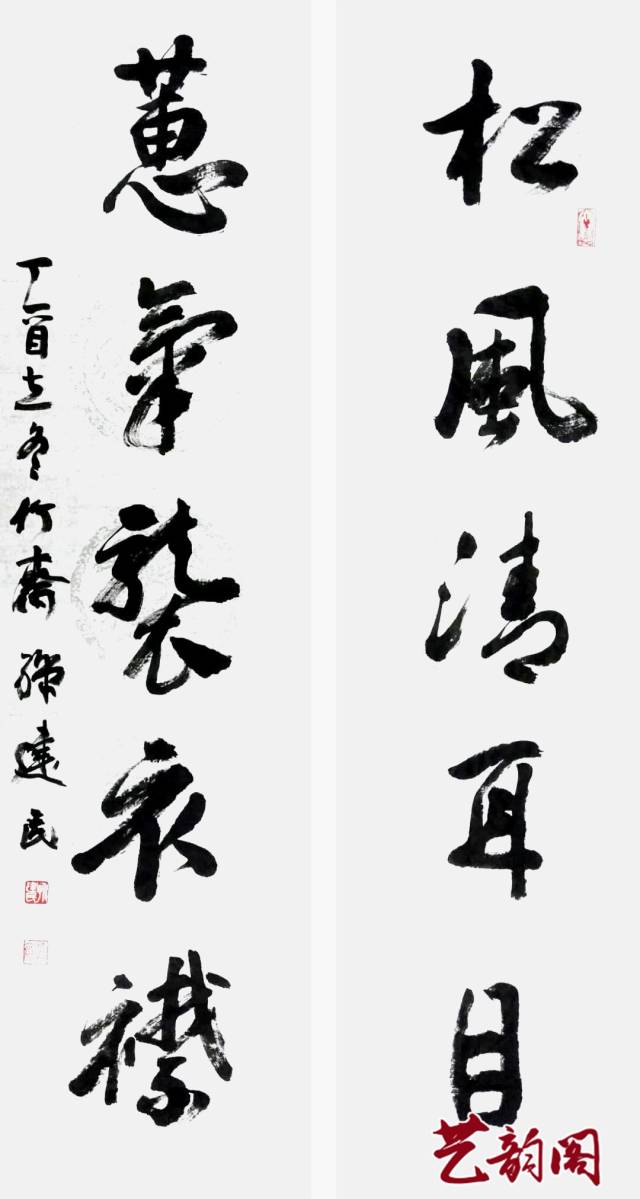 松風清耳目
蕙氣襲衣襟
丁酉立冬竹齋孫達民
艺韵阁